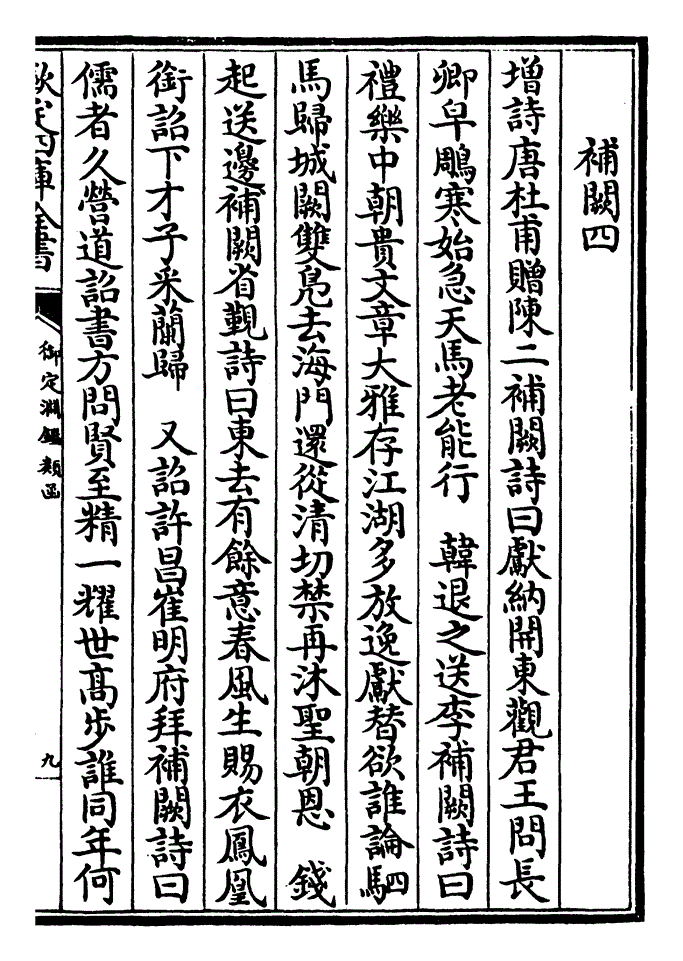 補闕四
增詩唐杜甫贈陳二補闕詩曰獻納開東觀君王問長
卿皁鵰寒始急天馬老能行　韓退之送李補闕詩曰
禮樂中朝貴文章大雅存江湖多放逸獻替欲誰論駟
馬歸城闕雙鳧去海門還從清切禁再沐聖朝恩　錢
起送邊補闕省覲詩曰東去有餘意春風生賜衣鳳凰
銜詔下才子采蘭歸　又詔許昌崔明府拜補闕詩曰
儒者久營道詔書方問賢至精一耀世高步誰同年何
欽定四庫全書
御定淵鑑類函
九